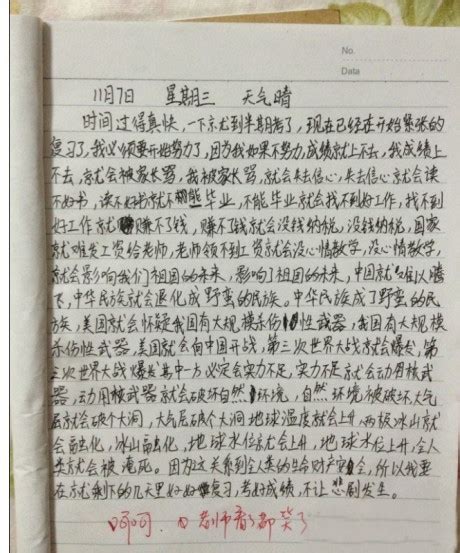 No.
Data
11月7日 星期三 天气晴
时间过得真快，一下就到半期考了，现在已经在开始紧张的
复习了，我必须要开始努力了，因为我如果不努力，成绩就上不去，我成绩上
不去，就会被家长骂，我被家长骂，就会失去信心，失去信心就会读
不好书，读不好书就不能毕业，不能毕业就会找不到好工作，找不到
好工作就赚不了钱，赚不了钱就会没钱纳税，没钱纳税，国家
就难发工资给老师，老师领不到工资就会没心情教学，没心情教学，
就会影响我们祖国的未来，影响了祖国的未来，中国就难以腾
飞，中华民族就会退化成野蛮的民族。中华民族成了野蛮的民
族，美国就会怀疑我国有大规模杀伤性武器，我国有大规模
杀伤性武器，美国就会向中国开战，第三次世界大战就会爆发，第
三次世界大战爆发其中一方必定会实力不足，实力不足就会动用核武
器，动用核武器就会破坏自然环境，自然环境被破坏，大气
层就会破个大洞，大气层破个大洞地球温度就会上升，两极冰山就
会融化，冰山融化，地球水位就会上升，地球水位上升，全人
类就会被淹死。因为这关系到全人类的生命财产安全，所以我要
在就剩下的几天里好好复习，考好成绩，不让悲剧发生。
呵呵，老师看了都笑了